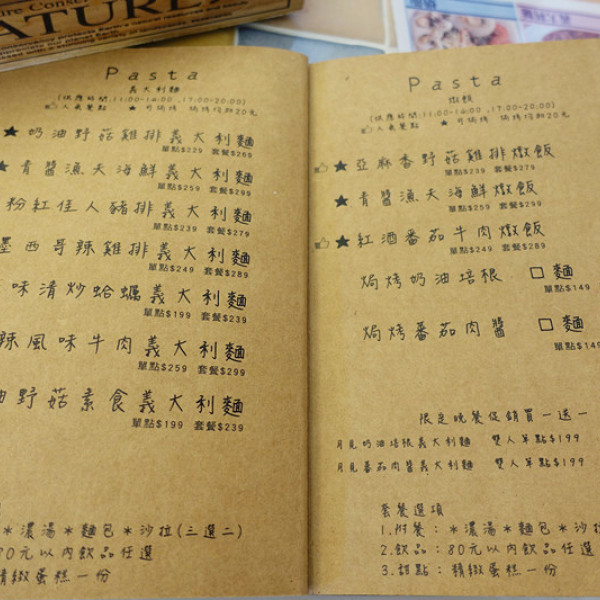 ATURE
Pasta
義大利麵
(供應時間:11:00-14:00 ,17:00-20:00)
人氣餐點 ★ 可焗烤 焗烤均加20元
★ 奶油野菇雞排義大利麵
單點$229 套餐$269
★ 青醬漁夫海鮮義大利麵
單點$259 套餐$299
粉紅佳人豬排義大利麵
單點$239 套餐$279
墨西哥辣雞排義大利麵
單點$249 套餐$289
味清炒蛤蠣義大利麵
單點$199 套餐$239
辣風味牛肉義大利麵
單點$259 套餐$299
油野菇素食義大利麵
單點$199 套餐$239
*濃湯*麵包*沙拉(三選二)
80元以內飲品任選
精緻蛋糕一份
Pasta
燉飯
(供應時間:11:00-14:00 ,17:00-20:00)
人氣餐點 ★ 可焗烤 焗烤均加20元
★ 亞麻香野菇雞排燉飯
單點$239 套餐$279
★ 青醬漁夫海鮮燉飯
單點$259 套餐$299
★ 紅酒番茄牛肉燉飯
單點$249 套餐$289
焗烤奶油培根 □麵
單點$149
焗烤番茄肉醬 □麵
單點$149
限定晚餐促銷買一送一
月見奶油培根義大利麵 雙人單點$199
月見番茄肉醬義大利麵 雙人單點$199
套餐選項
1.附餐:*濃湯*麵包*沙拉
2.飲品:80元以內飲品任選
3.甜點:精緻蛋糕一份